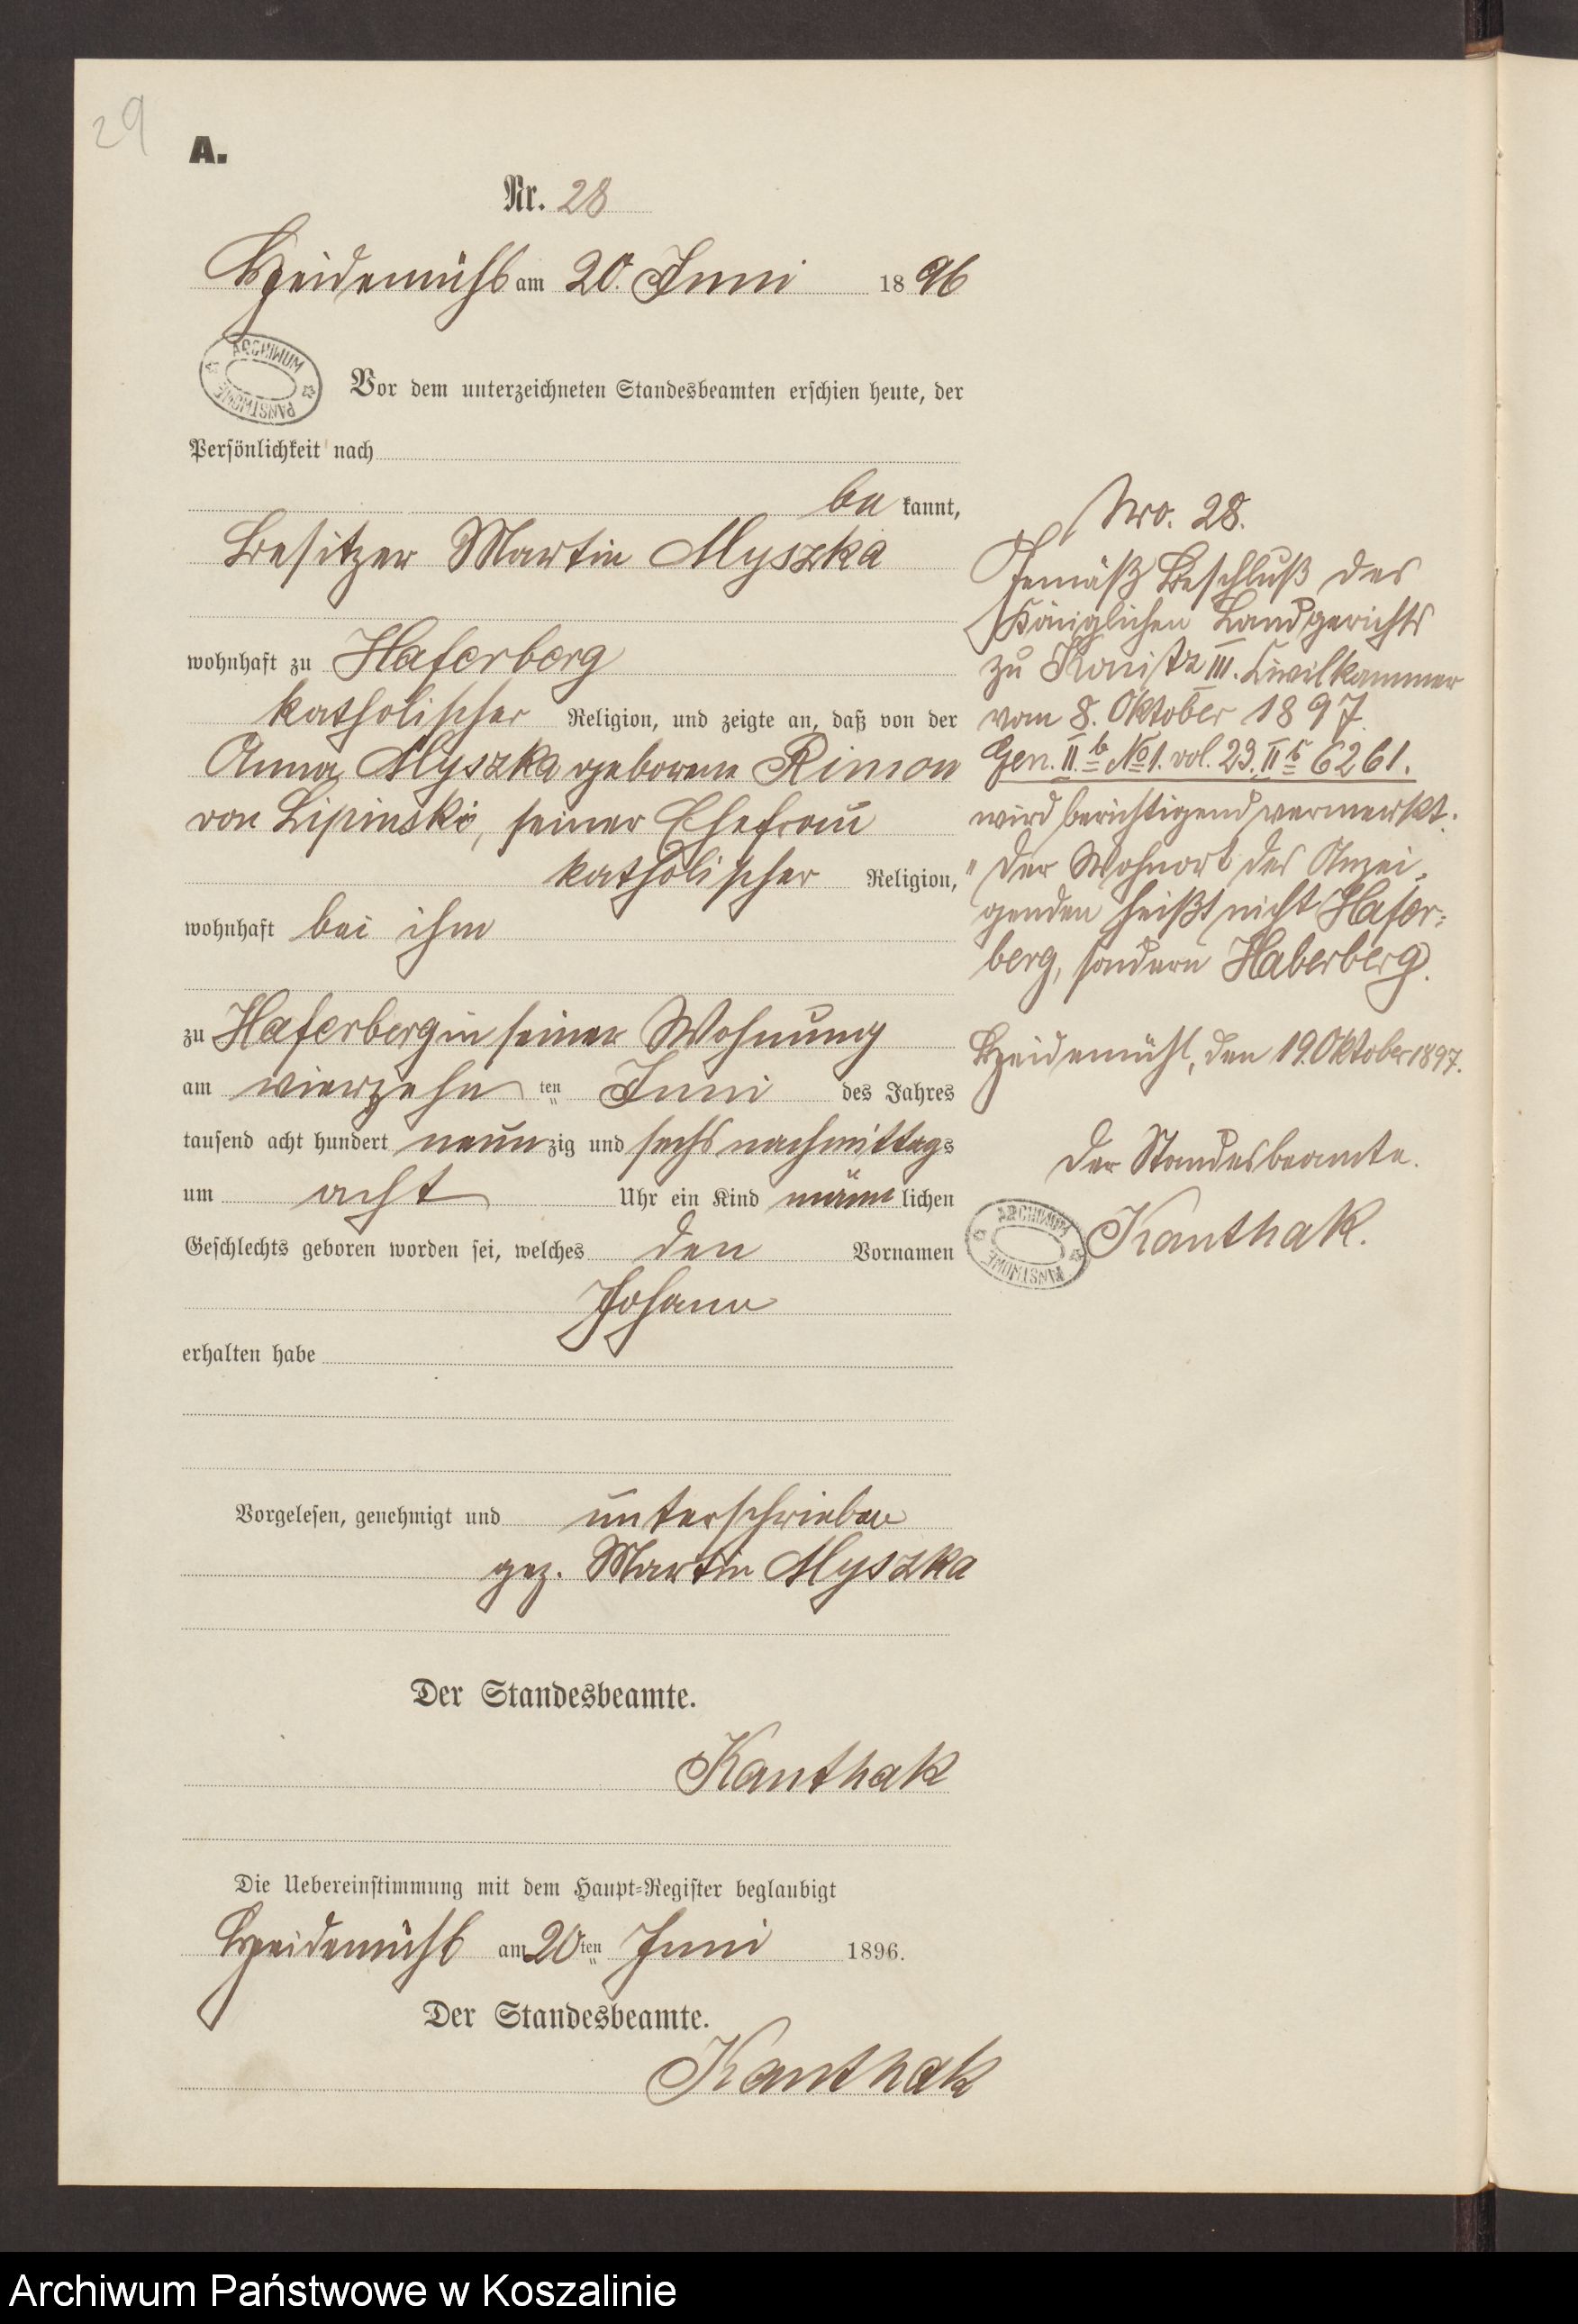 29
A.
Nr. 28
Heidemühl am 20. Juni 1896
ARCHIWUM PAŃSTWOWE
Vor dem unterzeichneten Standesbeamten erschien heute, der
Persönlichkeit nach
be kannt,
Besitzer Martin Myszka
wohnhaft zu Haferberg
katholischer Religion, und zeigte an, daß von der
Anna Myszka geborene Rimon
von Lipinski, seiner Ehefrau
katholischer Religion,
wohnhaft bei ihm
zu Haferberg in seiner Wohnung
am vierzehn ten Juni des Jahres
tausend acht hundert neun zig und sechs nachmittags
um acht Uhr ein Kind männ lichen
Geschlechts geboren worden sei, welches den Vornamen
Johann
erhalten habe
Vorgelesen, genehmigt und unterschrieben
gez. Martin Myszka
Der Standesbeamte.
Kanthak
Die Uebereinstimmung mit dem Haupt-Register beglaubigt
Heidemühl am 20ten Juni 1896.
Der Standesbeamte.
Kanthak
Nro. 28.
Gemäß Beschluß des
Königlichen Landgerichts
zu Konitz III. Civilkammer
vom 8. Oktober 1897.
Gen. II.b No 1. vol. 23. II 5 6261.
wird berichtigend vermerkt:
"Der Wohnort des Anzei-
genden heißt nicht Hafer-
berg, sondern Haberberg.
Heidemühl, den 19. Oktober 1897.
Der Standesbeamte.
Kanthak.
ARCHIWUM PAŃSTWOWE
Archiwum Państwowe w Koszalinie